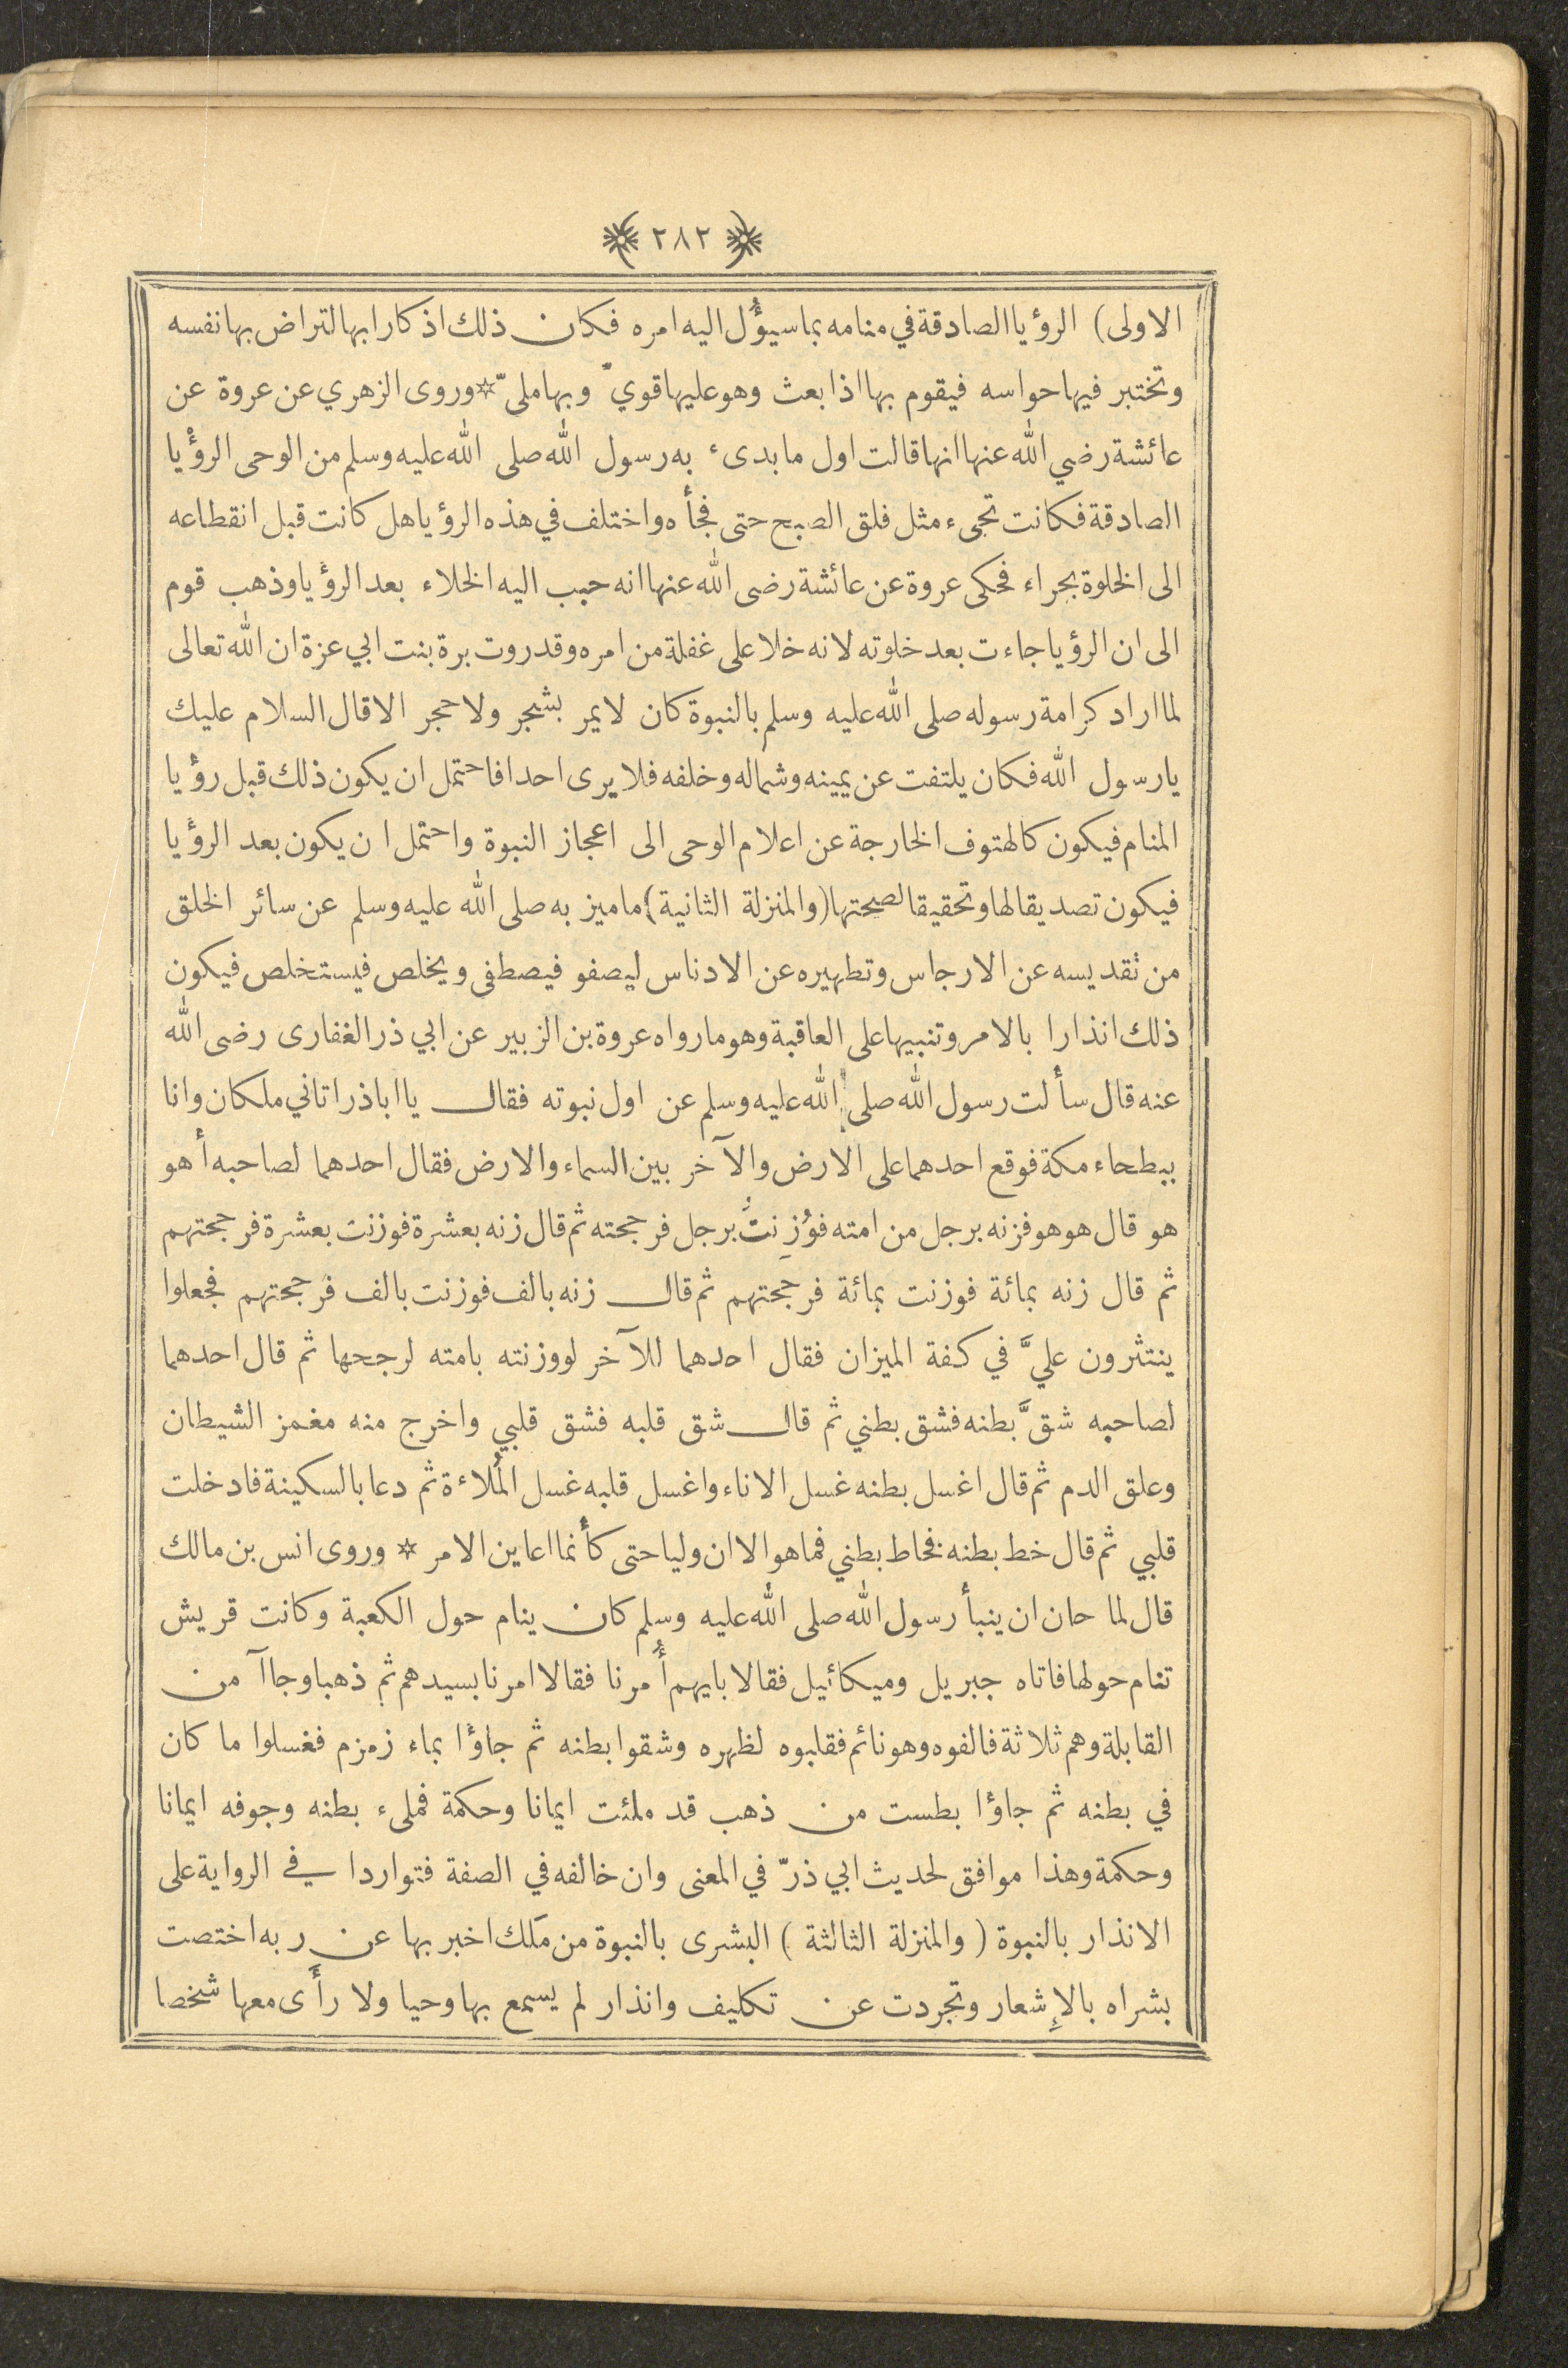 ٢٨٢
الاولى) الرؤيا الصادقة في منامه بما سيؤل اليه امره فكان ذلك اذكارا بها لتراض بها نفسه
وتختبر فيها حواسه فيقوم بها اذا بعث وهو عليها قويّ وبها ملىّ * وروى الزهري عن عروة عن
عائشة رضي الله عنها انها قالت اول ما بدىء به رسول الله صلى الله عليه وسلم من الوحى الرؤيا
الصادقة فكانت تجىء مثل فلق الصبح حتى فجأه واختلف في هذه الرؤيا هل كانت قبل انقطاعه
الى الخلوة بحراء فحكى عروة عن عائشة رضى الله عنها انه حبب اليه الخلاء بعد الرؤيا وذهب قوم
الى ان الرؤيا جاءت بعد خلوته لانه خلا على غفلة من امره وقد روت برة بنت ابي عزة ان الله تعالى
لما اراد كرامة رسوله صلى الله عليه وسلم بالنبوة كان لا يمر بشجر ولا حجر الا قال السلام عليك
يا رسول الله فكان يلتفت عن يمينه وشماله وخلفه فلا يرى احدا فاحتمل ان يكون ذلك قبل رؤيا
المنام فيكون كالهتوف الخارجة عن اعلام الوحى الى اعجاز النبوة واحتمل ان يكون بعد الرؤيا
فيكون تصديقا لها وتحقيقا لصحتها (والمنزلة الثانية) ما ميز به صلى الله عليه وسلم عن سائر الخلق
من تقديسه عن الارجاس وتطهيره عن الادناس ليصفو فيصطفى ويخلص فيستخلص فيكون
ذلك انذارا بالامر وتنبيها على العاقبة وهو ما رواه عروة بن الزبير عن ابي ذر الغفارى رضى الله
عنه قال سألت رسول الله صلى الله عليه وسلم عن اول نبوته فقال يا اباذر اتاني ملكان وانا
ببطحاء مكة فوقع احدهما على الارض والآخر بين السماء والارض فقال احدهما لصاحبه أهو
هو قال هو هو فزنه برجل من امته فوُزِنتُ برجل فرجحته ثم قال زنه بعشرة فوزنت بعشرة فرجحتهم
ثم قال زنه بمائة فوزنت بمائة فرجحتهم ثم قال زنه بالف فوزنت بالف فرجحتهم فجعلوا
ينتثرون عليَّ في كفة الميزان فقال احدهما للآخر لو وزنته بامته لرجحها ثم قال احدهما
لصاحبه شقَّ بطنه فشق بطني ثم قال شق قلبه فشق قلبي واخرج منه مغمز الشيطان
وعلق الدم ثم قال اغسل بطنه غسل الاناء واغسل قلبه غسل المُلاءة ثم دعا بالسكينة فادخلت
قلبي ثم قال خط بطنه فخاط بطني فما هو الا ان وليا حتى كأنما اعاين الامر * وروى انس بن مالك
قال لما حان ان ينبأ رسول الله صلى الله عليه وسلم كان ينام حول الكعبة وكانت قريش
تنام حولها فاتاه جبريل وميكائيل فقالا بايهم أُمرنا فقالا امرنا بسيدهم ثم ذهبا وجاآ من
القابلة وهم ثلاثة فالفوه وهو نائم فقلبوه لظهره وشقوا بطنه ثم جاؤا بماء زمزم فغسلوا ما كان
في بطنه ثم جاؤا بطست من ذهب قد ملئت ايمانا وحكمة فملىء بطنه وجوفه ايمانا
وحكمة وهذا موافق لحديث ابي ذرّ في المعنى وان خالفه في الصفة فتواردا في الرواية على
الانذار بالنبوة (والمنزلة الثالثة) البشرى بالنبوة من مَلك اخبر بها عن ربه اختصت
بشراه بالإشعار وتجردت عن تكليف وانذار لم يسمع بها وحيا ولا رأَى معها شخصا